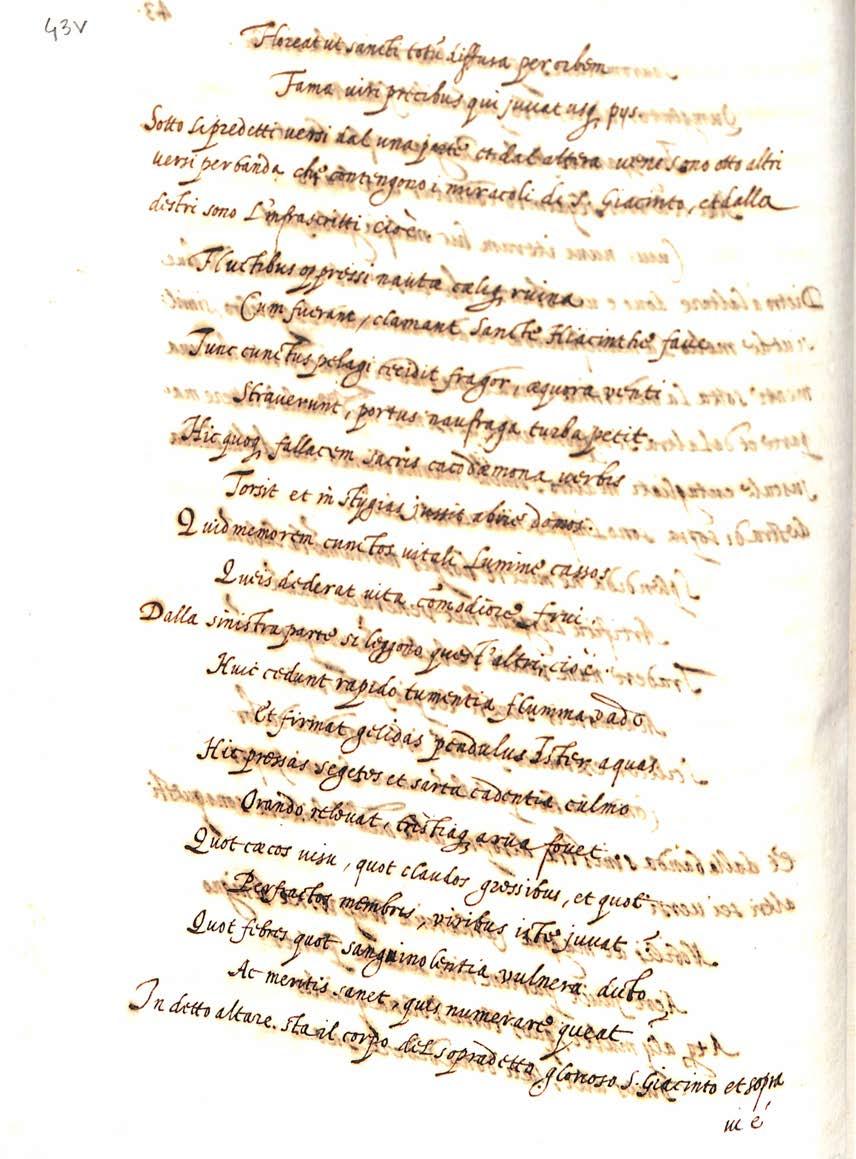 43v
Floreat ut sancti totũ diffusa per orbem
Fama viri precibus qui juvat usq; pys.
Sotto li predetti versi dal una parte et dal altera vene sono otto altri
versi per banda che contengono i miracoli di S. Giacinto, et dalla
destri sono L'infrascritti cioè
Fluctibus oppressi nautæ cæliq; ruina
Cum fuerant, clamant Sancte Hiacinthe fave
Tunc cunctus pelagi cecidit fragor, æquora venti
Straverunt, portus naufraga turba petit.
Hic quoq; fallacem sacris cacodæmona verbis
Torsit et in stÿgias jussit abire domos.
Quid memorem cunctos vitali Lumine cassos
Queis dederat vita cõmodiore frui
Dalla sinistra parte si leggono quest'altri, cioè.
Huic cedunt rapido tumentia flumma vado
Et firmat gelidas pendulus Ister aquas
Hic pressas segetes et sarta cadentia culmo
Orando relevat, tristiaq; arva fovet.
Quot cæcos visu, quot claudos gressibus, et quot
Perfractos membris, viribus iste juvat
Quot febres quot sanguinolentia vulnera dubo
Ac meritis sanet, quis numerare queat
In detto altare sta il corpo del sopradetto glorioso S. Giacinto et sopra
vi é